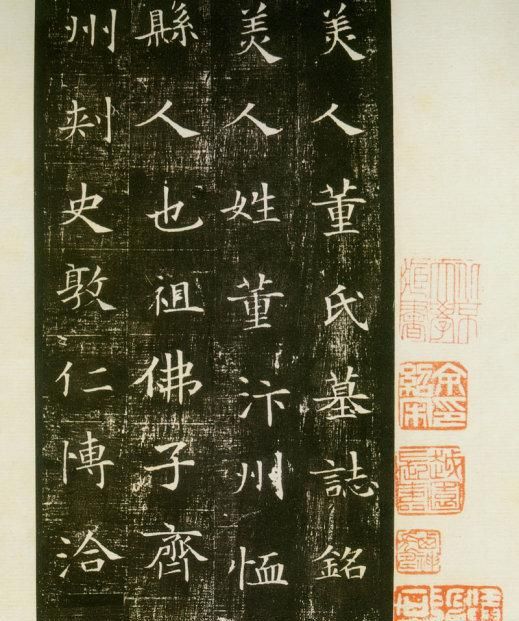 美人董氏墓誌銘
美人姓董汴州恤
縣人也祖佛子齊
州刾史敦仁愽洽
余印紹宋